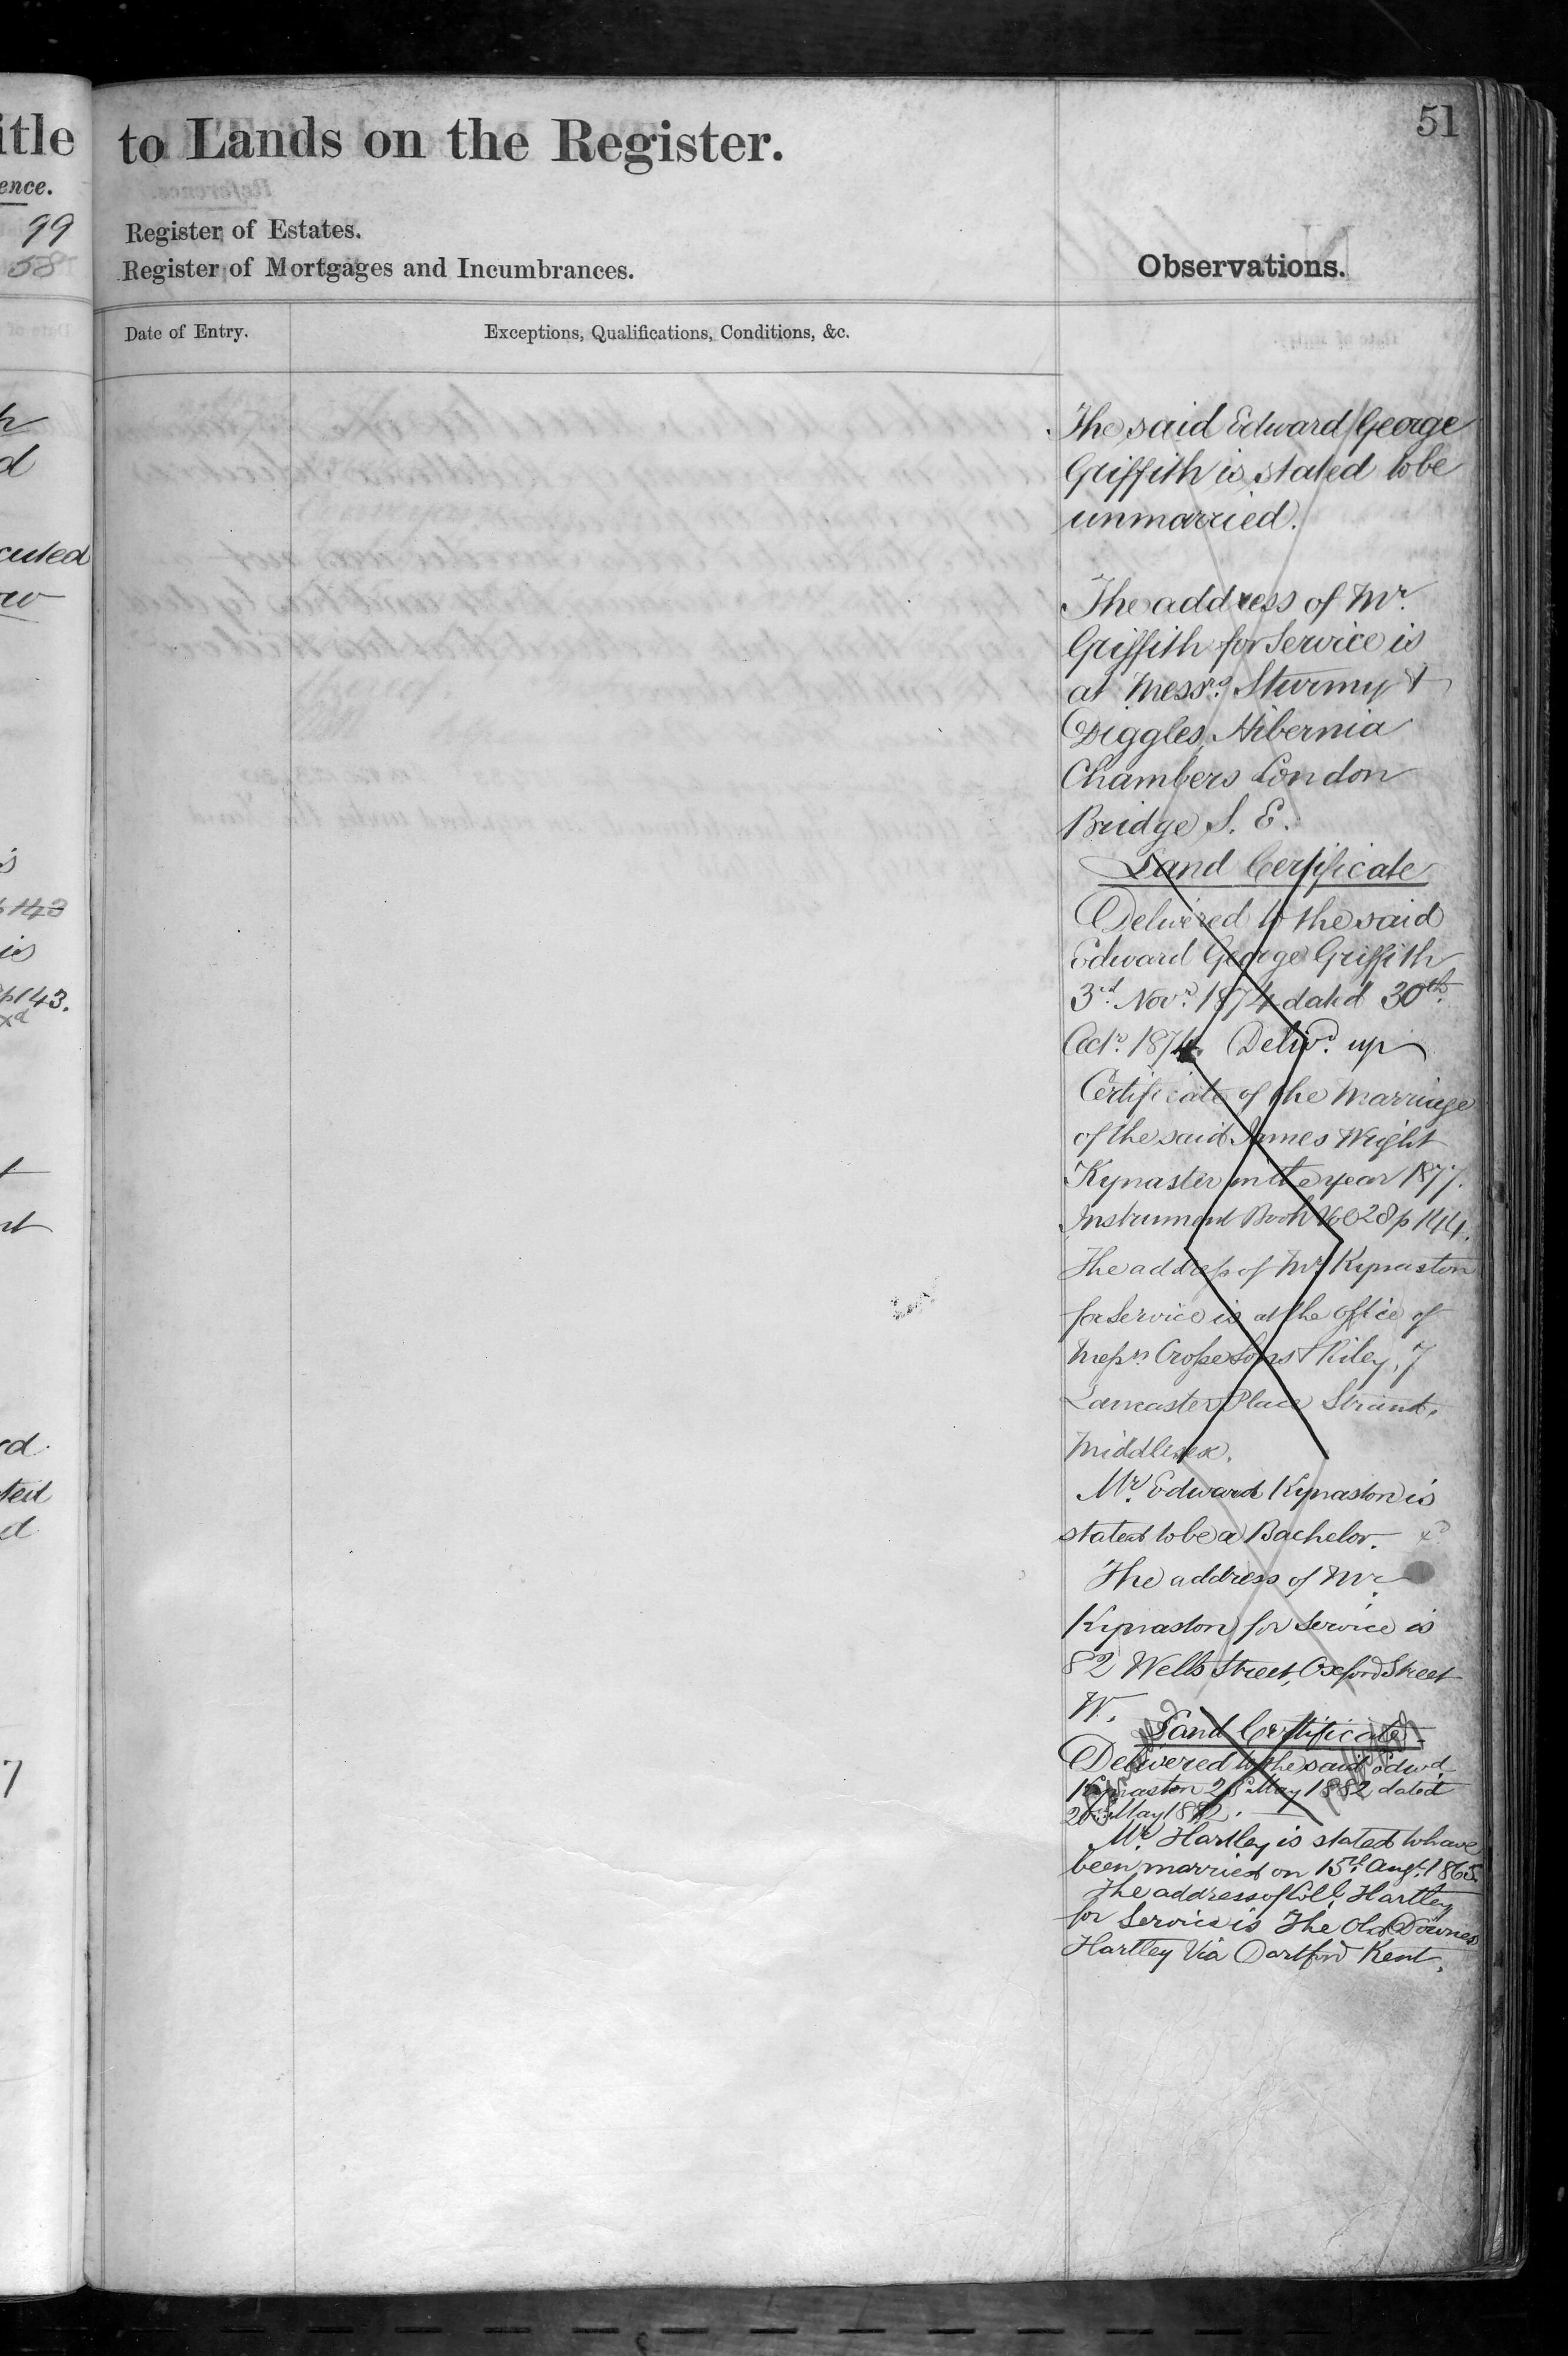 51
itle to Lands on the Register.
ence.
99 Register of Estates.
58 Register of Mortgages and Incumbrances.
Observations.
Date of Entry. Exceptions, Qualifications, Conditions, &c.
The said Edward George
Griffith is stated to be
unmarried.
The address of Mr.
Griffith for Service is
at Messrs. Sturmy &
Diggles, Hibernia
Chambers London
Bridge S. E.
Land Certificate
Delivered to the said
Edward George Griffith
3rd. Novr. 1874 dated 30th.
Octr. 1874. Delivd. up
Certificate of the Marriage
of the said James Wright
Kynaster in the year 1877.
Instrument Book Vol 28 p 144.
The address of Mr. Kynaston
for Service is at the office of
Messrs. Crosse Sons & Riley, 7
Lancaster Place Strand,
Middlesex.
Mr. Edward Kynaston is
stated to be a Bachelor. xd
The address of Mr.
Kynaston for Service is
82 Wells Street, Oxford Street
W.
Land Certificate
Delivered to the said Edwd.
Kynaston May 1882 dated
May 1882.
Mr. Hartley is stated to have
been married on 15th. Augt. 1865.
The address of Coll. Hartley
for Service is The Old Downes
Hartley Via Dartford Kent.
h
d
cuted
w
is
p 143
is
p 143.
xd
t
nt
ed.
ted
d
7